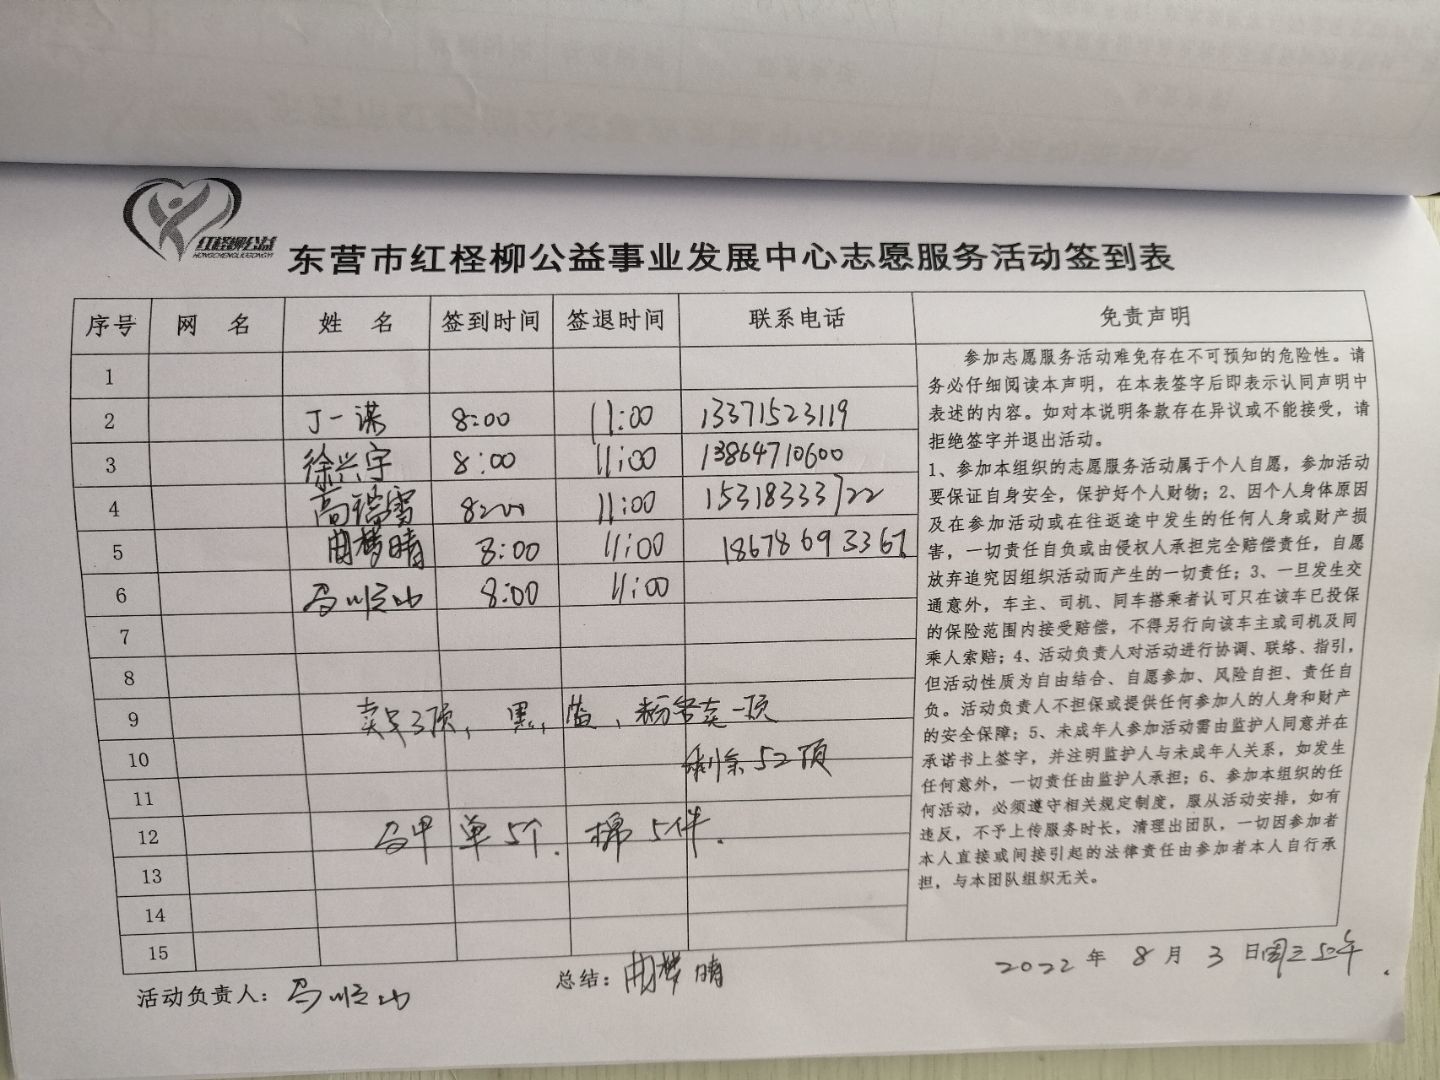 红柽柳公益
HONGCHENGLIUGONGYI
东营市红柽柳公益事业发展中心志愿服务活动签到表
序号 网 名 姓 名 签到时间 签退时间 联系电话 免责声明
1
2 丁一谋 8:00 11:00 13371523119
3 徐兴宇 8:00 11:00 13864710600
4 高瑞雪 8:00 11:00 15318333722
5 曲梦晴 8:00 11:00 18678693367
6 马顺山 8:00 11:00
7
8
9 卖车3顶，黑，蓝，粉各卖一顶
10 剩余52顶
11
12 马甲 单5个. 棉5件.
13
14
15
参加志愿服务活动难免存在不可预知的危险性。请
务必仔细阅读本声明，在本表签字后即表示认同声明中
表述的内容。如对本说明条款存在异议或不能接受，请
拒绝签字并退出活动。
1、参加本组织的志愿服务活动属于个人自愿，参加活动
要保证自身安全，保护好个人财物；2、因个人身体原因
及在参加活动或在往返途中发生的任何人身或财产损
害，一切责任自负或由侵权人承担完全赔偿责任，自愿
放弃追究因组织活动而产生的一切责任；3、一旦发生交
通意外，车主、司机、同车搭乘者认可只在该车已投保
的保险范围内接受赔偿，不得另行向该车主或司机及同
乘人索赔；4、活动负责人对活动进行协调、联络、指引，
但活动性质为自由结合、自愿参加、风险自担、责任自
负。活动负责人不担保或提供任何参加人的人身和财产
的安全保障；5、未成年人参加活动需由监护人同意并在
承诺书上签字，并注明监护人与未成年人关系，如发生
任何意外，一切责任由监护人承担；6、参加本组织的任
何活动，必须遵守相关规定制度，服从活动安排，如有
违反，不予上传服务时长，清理出团队，一切因参加者
本人直接或间接引起的法律责任由参加者本人自行承
担，与本团队组织无关。
活动负责人：马顺山 总结：曲梦晴 2022 年 8 月 3 日周三上午.